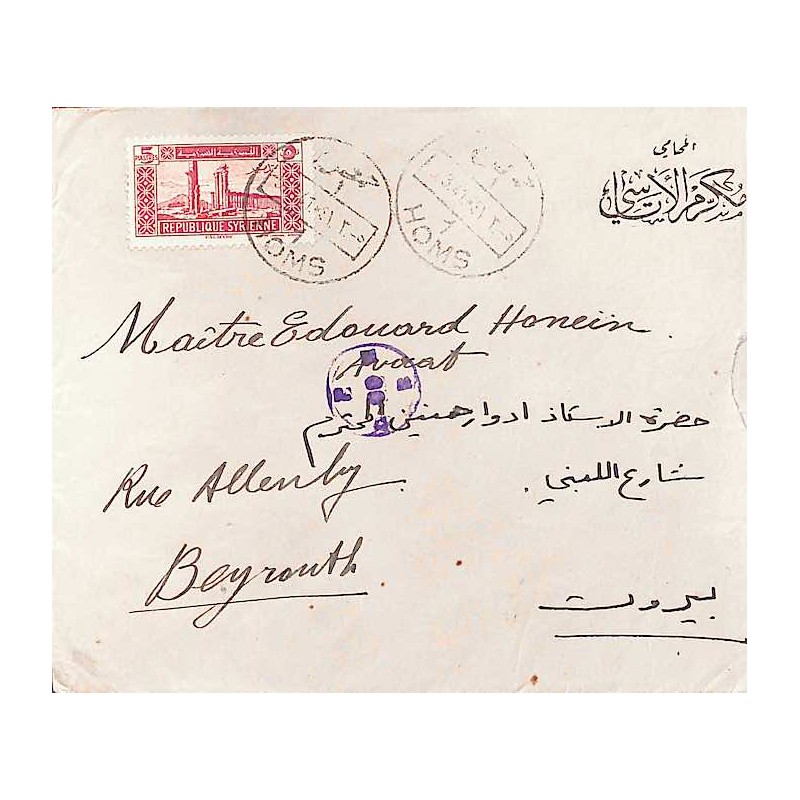 المحامي
مكرم الأتاسي
5
PIASTRES
REPUBLIQUE SYRIENNE
حمص
HOMS
حمص
HOMS
Maître Edouard Honein.
Avocat
حضرة الاستاذ ادوار حنين المحترم
شارع اللنبي.
Rue Allenby.
Beyrouth
بيروت